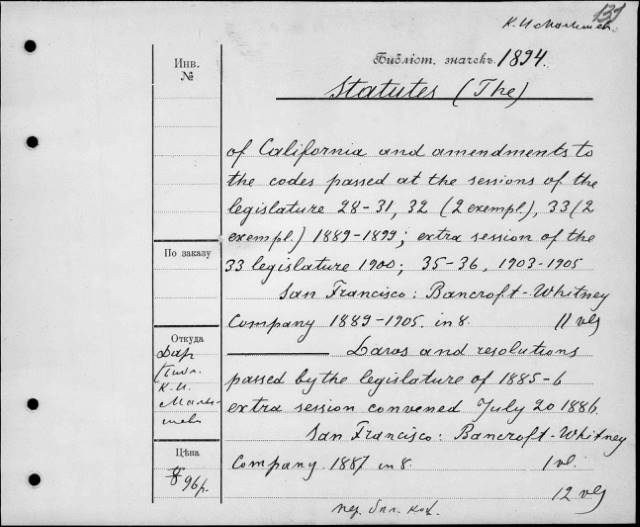 131
К. И. Малышев.
Инв.
№
Библіот. значекъ. 1894.
Statutes (The)
of California and amendments to
the codes passed at the sessions of the
legislature 28-31, 32 (2 exempl.), 33 (2
exempl.) 1889-1899; extra session of the
По заказу
33 legislature 1900; 35-36, 1903-1905
San Francisco: Bancroft-Whitney
Company 1889-1905. in 8. 11 vls
Откуда
Дар
Библ.
К. И.
Малы-
шева
Laws and resolutions
passed by the legislature of 1885-6
extra session convened July 20 1886.
San Francisco: Bancroft-Whitney
Цѣна
96р.
Company 1887 in 8. 1 vl.
12 vls
пер.